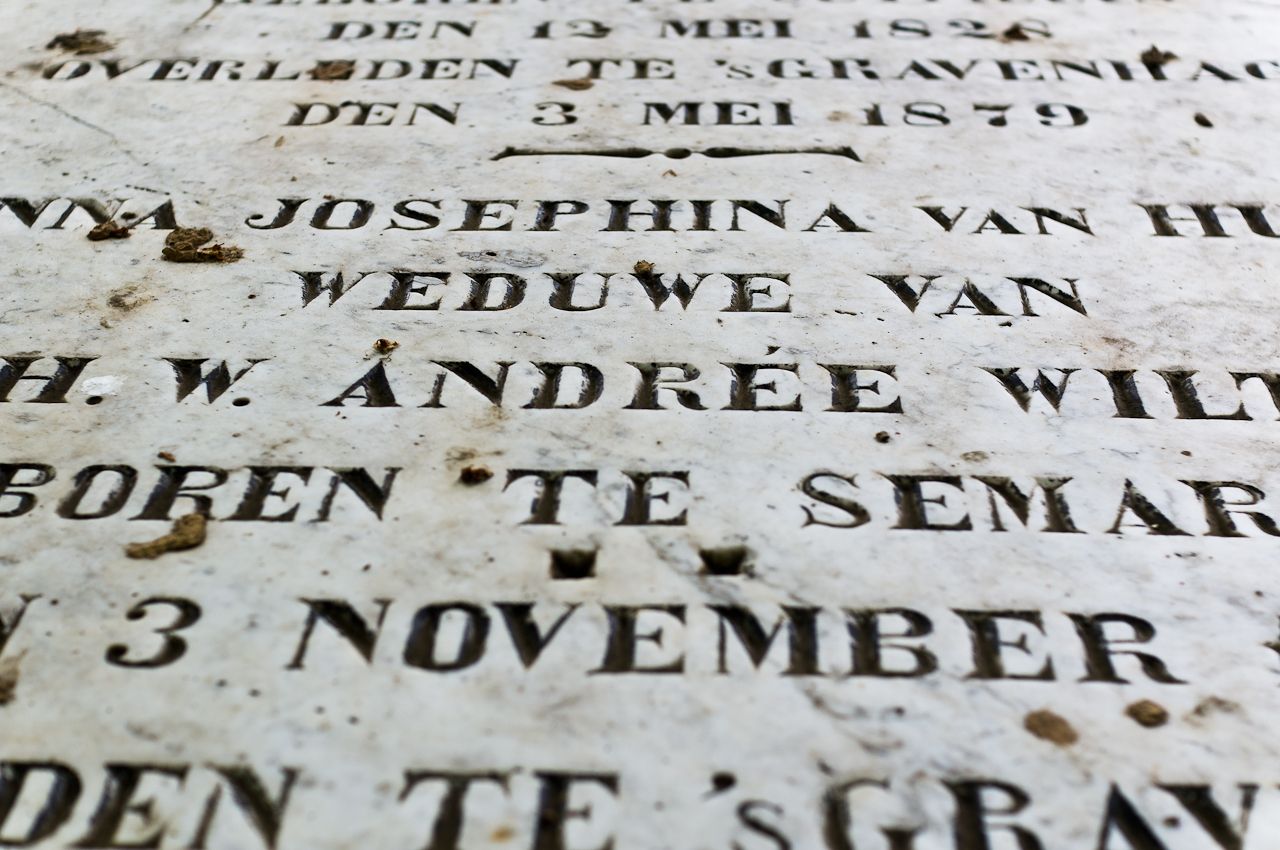 DEN 12 MEI 1828
OVERLEDEN TE 'sGRAVENHAG
DEN 3 MEI 1879
NNA JOSEPHINA VAN HU
WEDUWE VAN
H. W. ANDRÉE WILT
BOREN TE SEMAR
N 3 NOVEMBER
DEN TE 'sGRAV